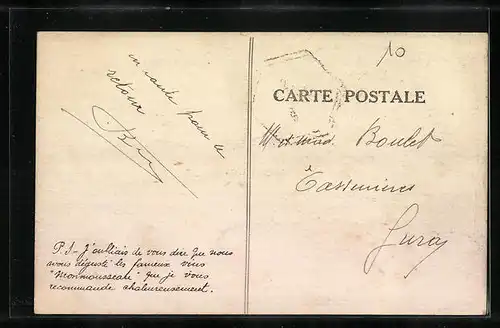 en route pour le
retour
P.S- J'oubliais de vous dire que nous
avons dégusté les fameux vins
"Monmousseau" que je vous
recommande chaleureusement.
10
CARTE POSTALE
Mr et Mad. Boulet
Jura